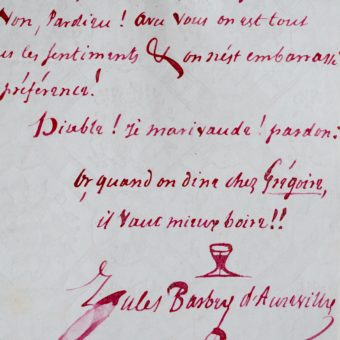 Non, Pardieu! avec vous on est tout
us les sentiments & on n'est embarrassé
préférence!
Diable! je marivaude! pardon:
Or, quand on dine chez Grégoire,
il vaut mieux boire!!
Jules Barbey d'Aurevilly